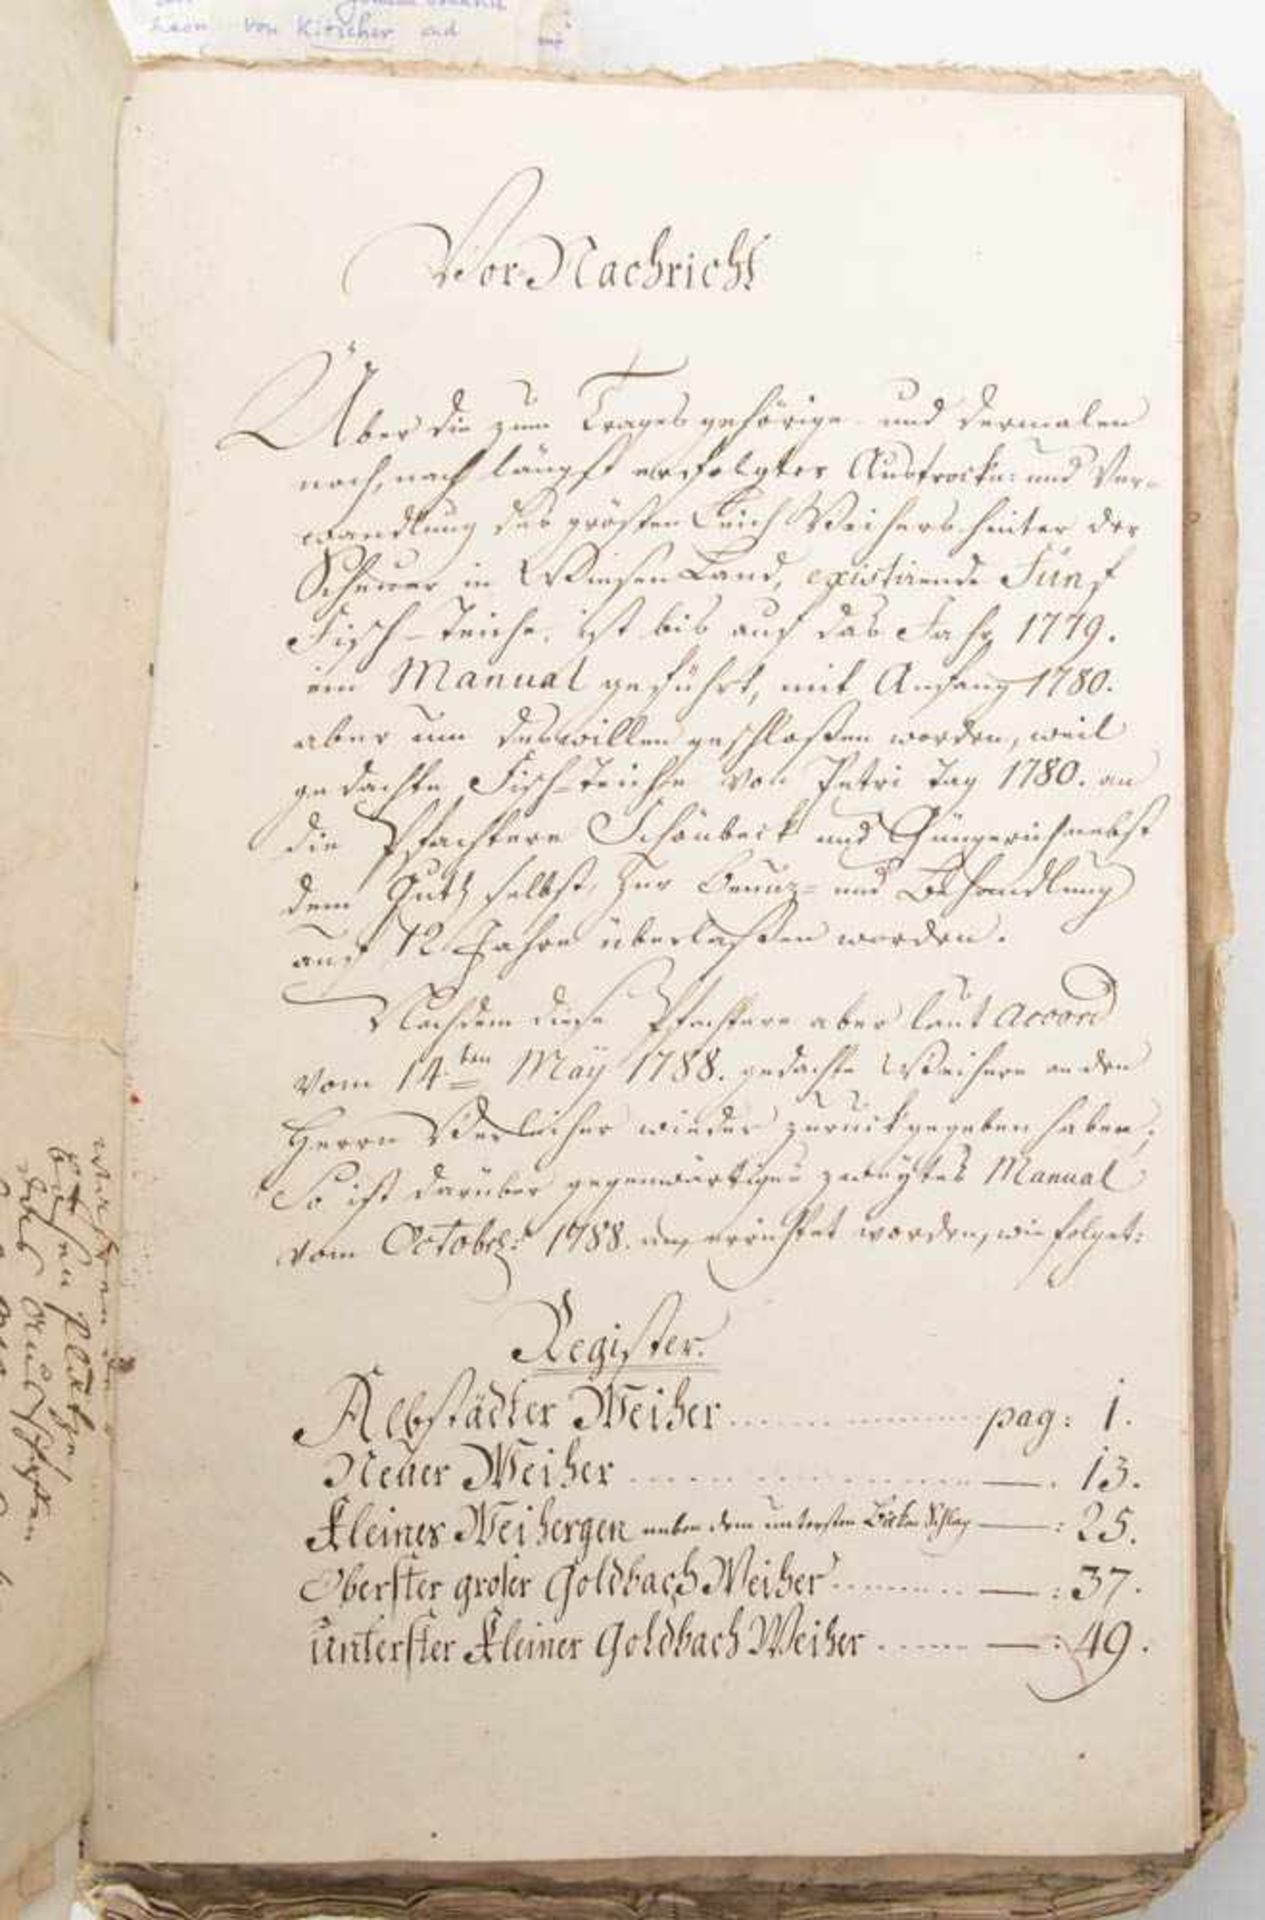 von Kitscher und
Vor Nachricht
Über die zum Trages gehörige und dermalen
noch, nach längst erfolgter Austrockn: und Ver-
wandlung des grösten Teich Weihers hinter der
Scheuer in Wiesen Land, existirende Fünf
Fisch-Teiche, ist bis auf das Jahr 1779.
ein Manual geführt, mit Anfang 1780.
aber um deswillen geschloßen worden, weil
gedachte Fisch-Teiche von Petri Tag 1780. an
die Pfachtere Schönbeck und Güngerich nebst
dem Guth selbst, zur Benuz- und Behandlung
auf 12 Jahre überlaßen worden.
Nachdem diese Pfachtere aber laut Accord
vom 14ten May 1788. gedachte Weihere an den
Herrn Verleiher wieder zurückgegeben haben;
So ist darüber gegenwärtiges zweytes Manual
vom Octobr: 1788. an, errichtet worden, wie folget:
Register.
Albstädter Weiher ........ pag: 1.
Neuer Weiher ........ —. 13.
Kleines Weihergen neben dem untersten Birken Schlag —: 25.
Oberster groser Goldbach Weiher ........ —: 37.
unterster Kleiner Goldbach Weiher ...... —: 49.